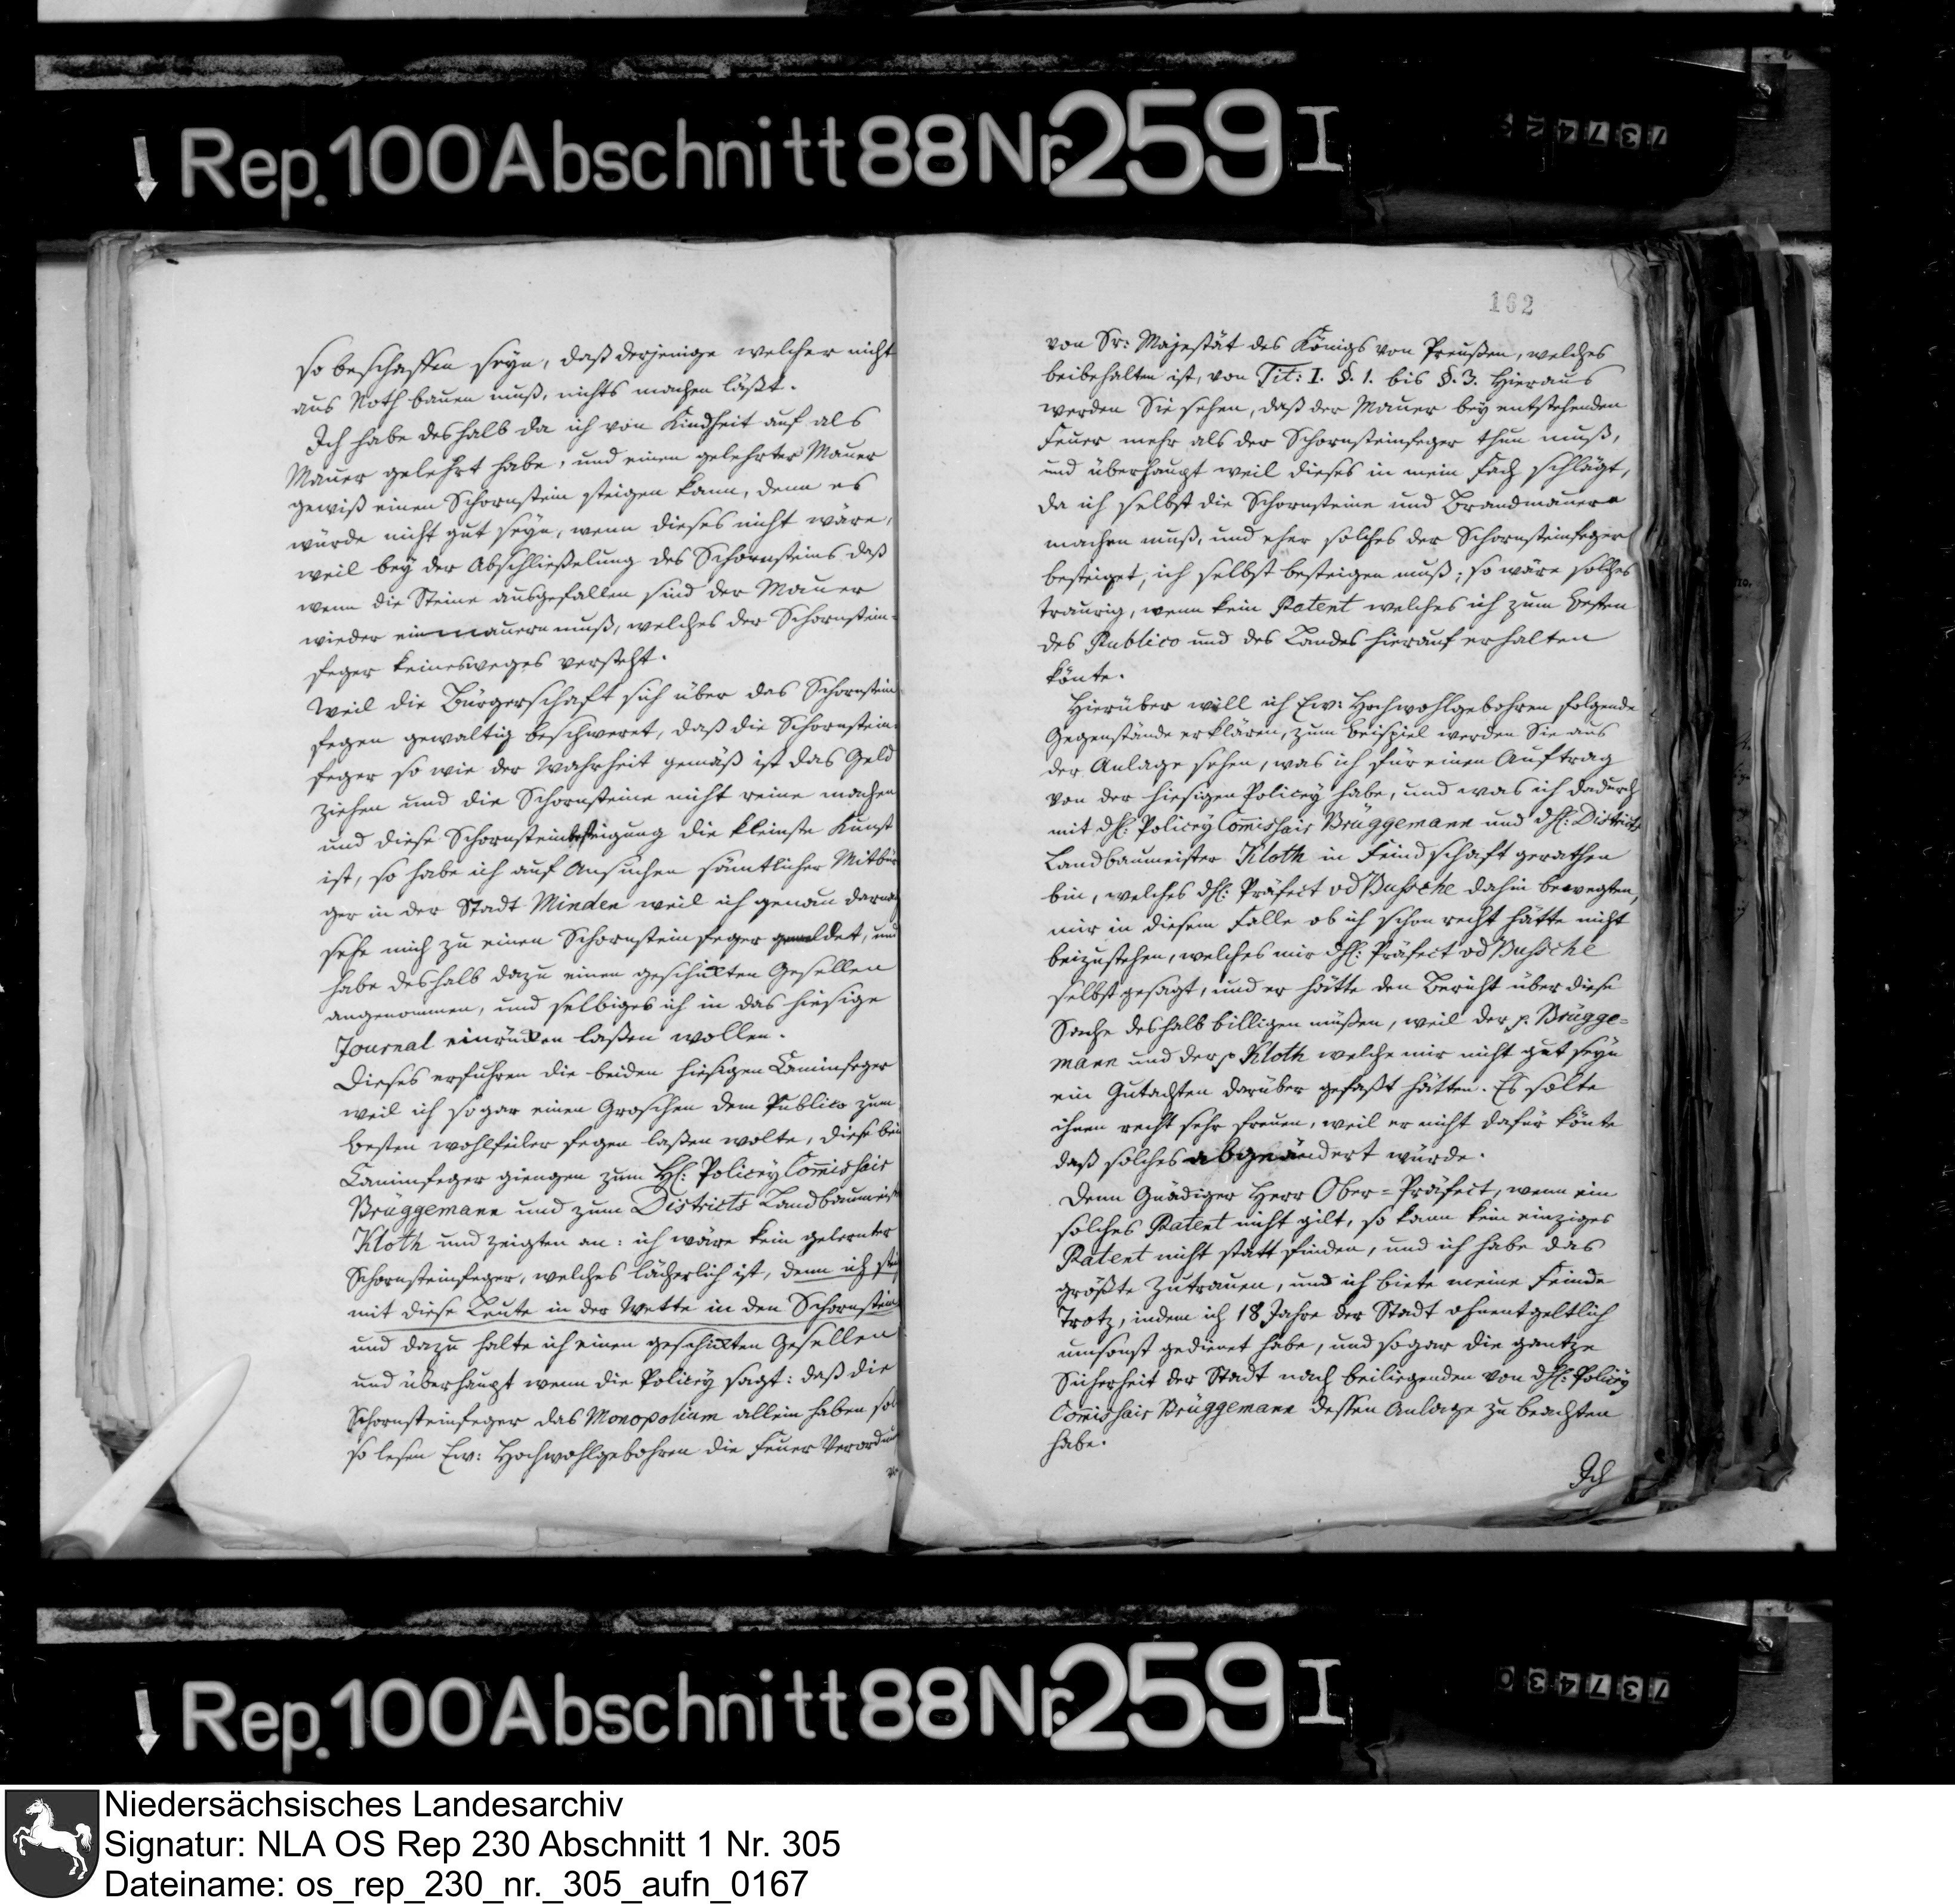 Rep. 100 Abschnitt 88 Nr. 259 I
so beschaffen seyn, daß derjenige welcher nicht
aus Noth bauen muß, nichts machen läßt.
Ich habe deshalb da ich von Kindheit auf als
Maurer gelehrt habe, und einen gelehrter Maurer
gewiß einen Schornstein steigen kann, denn es
würde nicht gut seyn, wenn dieses nicht wäre,
weil bey der Abschließelung des Schornsteins daß
wenn die Steine ausgefallen sind der Maurer
wieder einmauern muß, welches der Schornstein-
feger keinesweges versteht.
Weil die Bürgerschaft sich über das Schornstein
fegen gewaltig beschweret, daß die Schornstein-
feger so wie der Wahrheit gemäß ist das Geld
ziehen und die Schornsteine nicht reine machen
und diese Schornsteinbesteigung die kleinste Kunst
ist, so habe ich auf Ansuchen sämtlicher Mitbür
ger in der Stadt Minden weil ich genau darnach
sehe mich zu einen Schornsteinfeger gemeldet, und
habe deshalb dazu einen geschickten Gesellen
angenommen, und selbiges ich in das hiesige
Journal einrücken laßen wollen.
Dieses erfuhren die beiden hiesigen Caminfeger
weil ich sogar einen Groschen dem Publico zum
besten wohlfeiler fegen laßen wolte, diese bei
Caminfeger giengen zum H: Policey Commissair
Brüggemann und zum Districts Landbaumeist
Kloth und zeigten an: ich wäre kein gelernter
Schornsteinfeger, welches lächerlich ist, denn ich steig
mit diese Leute in der Wette in den Schornstein
und dazu halte ich einen geschickten Gesellen
und überhaupt wenn die Policey sagt: daß die
Schornsteinfeger das Monopolium allein haben sol
so lesen Ew: Hochwohlgebohren die Feuer Verordnung
162
von Sr: Majestät des Königs von Preußen, welches
beibehalten ist, von Tit: I. §. 1. bis §. 3. Hieraus
werden Sie sehen, daß der Maurer bey entstehenden
Feuer mehr als der Schornsteinfeger thun muß,
und überhaupt weil dieses in mein Fach schlägt,
da ich selbst die Schornsteine und Brandmauern
machen muß, und eher solches der Schornsteinfeger
besteiget, ich selbst besteigen muß; so wäre solches
traurig, wenn kein Patent welches ich zum besten
des Publico und des Landes hierauf erhalten
könte.
Hierüber will ich Ew: Hochwohlgebohren folgende
Gegenstände erklären, zum Beispiel werden Sie aus
der Anlage sehen, was ich für einen Auftrag
von der hiesigen Policey habe, und was ich dadurch
mit dH: Policey Commissair Brüggemann und dH: Districts
Landbaumeister Kloth in Feindschaft gerathen
bin, welches dH: Präfect vd Bussche dahin bewegten,
mir in diesem Falle ob ich schon recht hätte nicht
beizustehen, welches mir dH: Präfect vd Bussche
selbst gesagt, und er hätte den Bericht über diese
Sache deshalb billigen müßen, weil der p. Brügge-
mann und der p Kloth welche mir nicht gut seyn
ein Gutachten darüber gefaßt hätten. Es solte
ihnen recht sehr freuen, weil er nicht dafür könte
daß solches abgeändert würde.
Denn Gnädiger Herr Ober-Präfect, wenn ein
solches Patent nicht gilt, so kann kein einziges
Patent nicht statt finden, und ich habe das
größte Zutrauen, und ich biete meine Feinde
Trotz, indem ich 18 Jahre der Stadt ohnentgeltlich
umsonst gedienet habe, und sogar die gantze
Sicherheit der Stadt nach beiliegenden von dH: Policey
Commissair Brüggemann dessen Anlage zu beachten
habe.
Ich
Rep. 100 Abschnitt 88 Nr. 259 I
Niedersächsisches Landesarchiv
Signatur: NLA OS Rep 230 Abschnitt 1 Nr. 305
Dateiname: os_rep_230_nr._305_aufn_0167